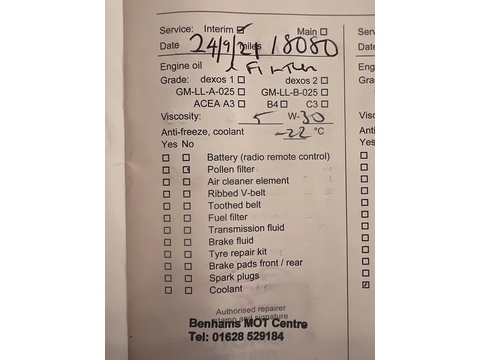 Service: Interim ☑ Main ☐
Date 24/9/21 miles 18080
Engine oil & Filter
Grade: dexos 1 ☐ dexos 2 ☐
GM-LL-A-025 ☐ GM-LL-B-025 ☐
ACEA A3 ☐ B4 ☐ C3 ☐
Viscosity: 5 W- 30
Anti-freeze, coolant -22 °C
Yes No
Battery (radio remote control)
Pollen filter
Air cleaner element
Ribbed V-belt
Toothed belt
Fuel filter
Transmission fluid
Brake fluid
Tyre repair kit
Brake pads front / rear
Spark plugs
Coolant
Authorised repairer
stamp and signature
Benhams MOT Centre
Tel: 01628 529184
S
D
E
G
V
A
Y